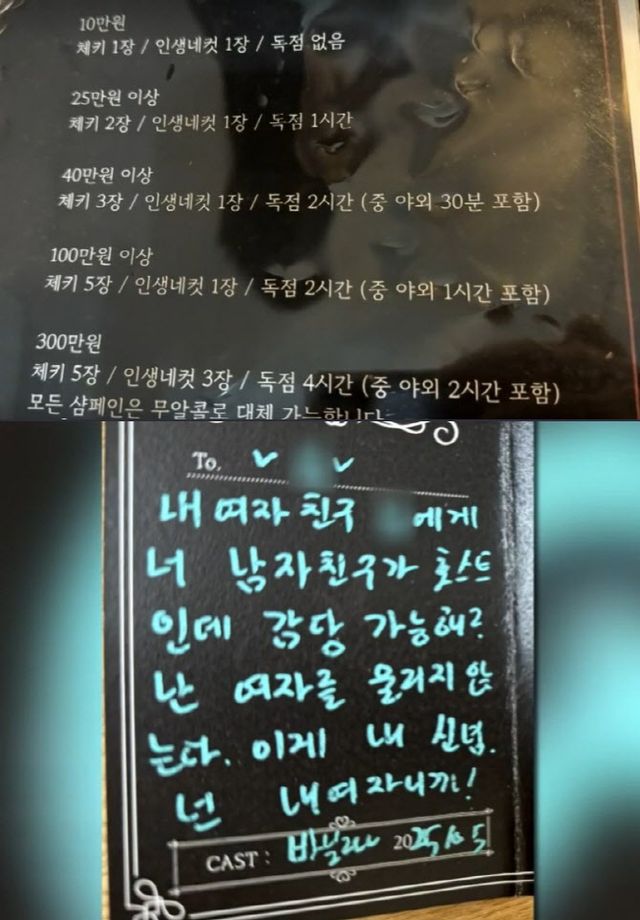 10만원
체키 1장 / 인생네컷 1장 / 독점 없음
25만원 이상
체키 2장 / 인생네컷 1장 / 독점 1시간
40만원 이상
체키 3장 / 인생네컷 1장 / 독점 2시간 (중 야외 30분 포함)
100만원 이상
체키 5장 / 인생네컷 1장 / 독점 2시간 (중 야외 1시간 포함)
300만원
체키 5장 / 인생네컷 3장 / 독점 4시간 (중 야외 2시간 포함)
모든 샴페인은 무알콜로 대체 가능합니다
To.
내 여자친구 에게
너 남자친구가 호스트
인데 감당 가능해?
난 여자를 울리지 않
는다. 이게 내 신념.
넌 내여자니까!
CAST : 2025.10.5